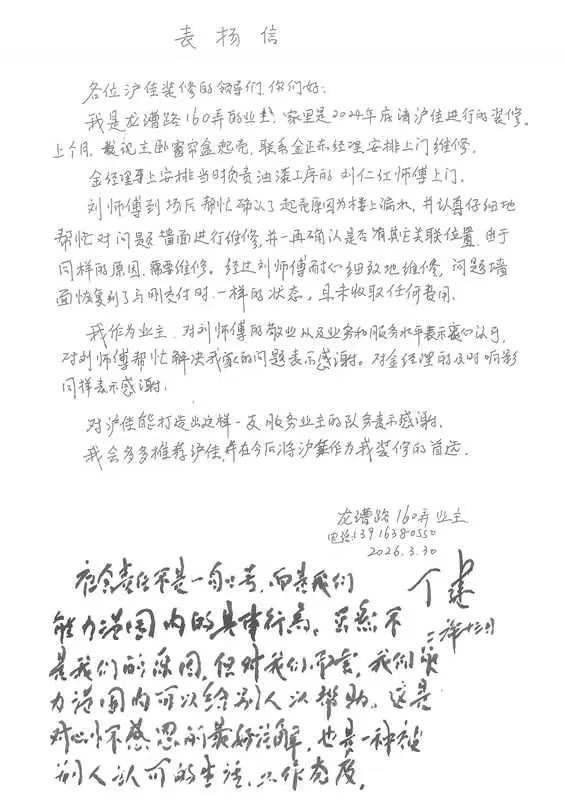 表扬信
各位沪佳装修的领导们,你们好:
我是龙漕路160弄的业主,家里是2024年底请沪佳进行的装修。
上个月,发现主卧窗帘盒起壳,联系金正东经理安排上门维修。
金经理马上安排当时负责油漆工序的刘仁红师傅上门。
刘师傅到场后帮忙确认了起壳原因为楼上漏水,并认真仔细地
帮忙对问题墙面进行维修,并一再确认是否有其它关联位置,由于
同样的原因,需要维修。经过刘师傅耐心细致地维修,问题墙
面恢复到了与刚交付时一样的状态,且未收取任何费用。
我作为业主,对刘师傅的敬业以及业务和服务水平表示衷心认可,
对刘师傅帮忙解决我家的问题表示感谢。对金经理的及时响影
同样表示感谢。
对沪佳能打造出这样一支服务业主的队务表示感谢。
我会多多推荐沪佳,并在今后将沪佳作为我装修的首选。
龙漕路160弄业主
电话:13916380550
2026.3.30
社会责任不是一句口号,而是我们
能力范围内的具体行为。虽然不
是我们的原因,但对我们而言,我们能
力范围内可以给别人以帮助。这是
对心怀感恩的最好注解,也是一种被
别人认可的生活、工作态度。